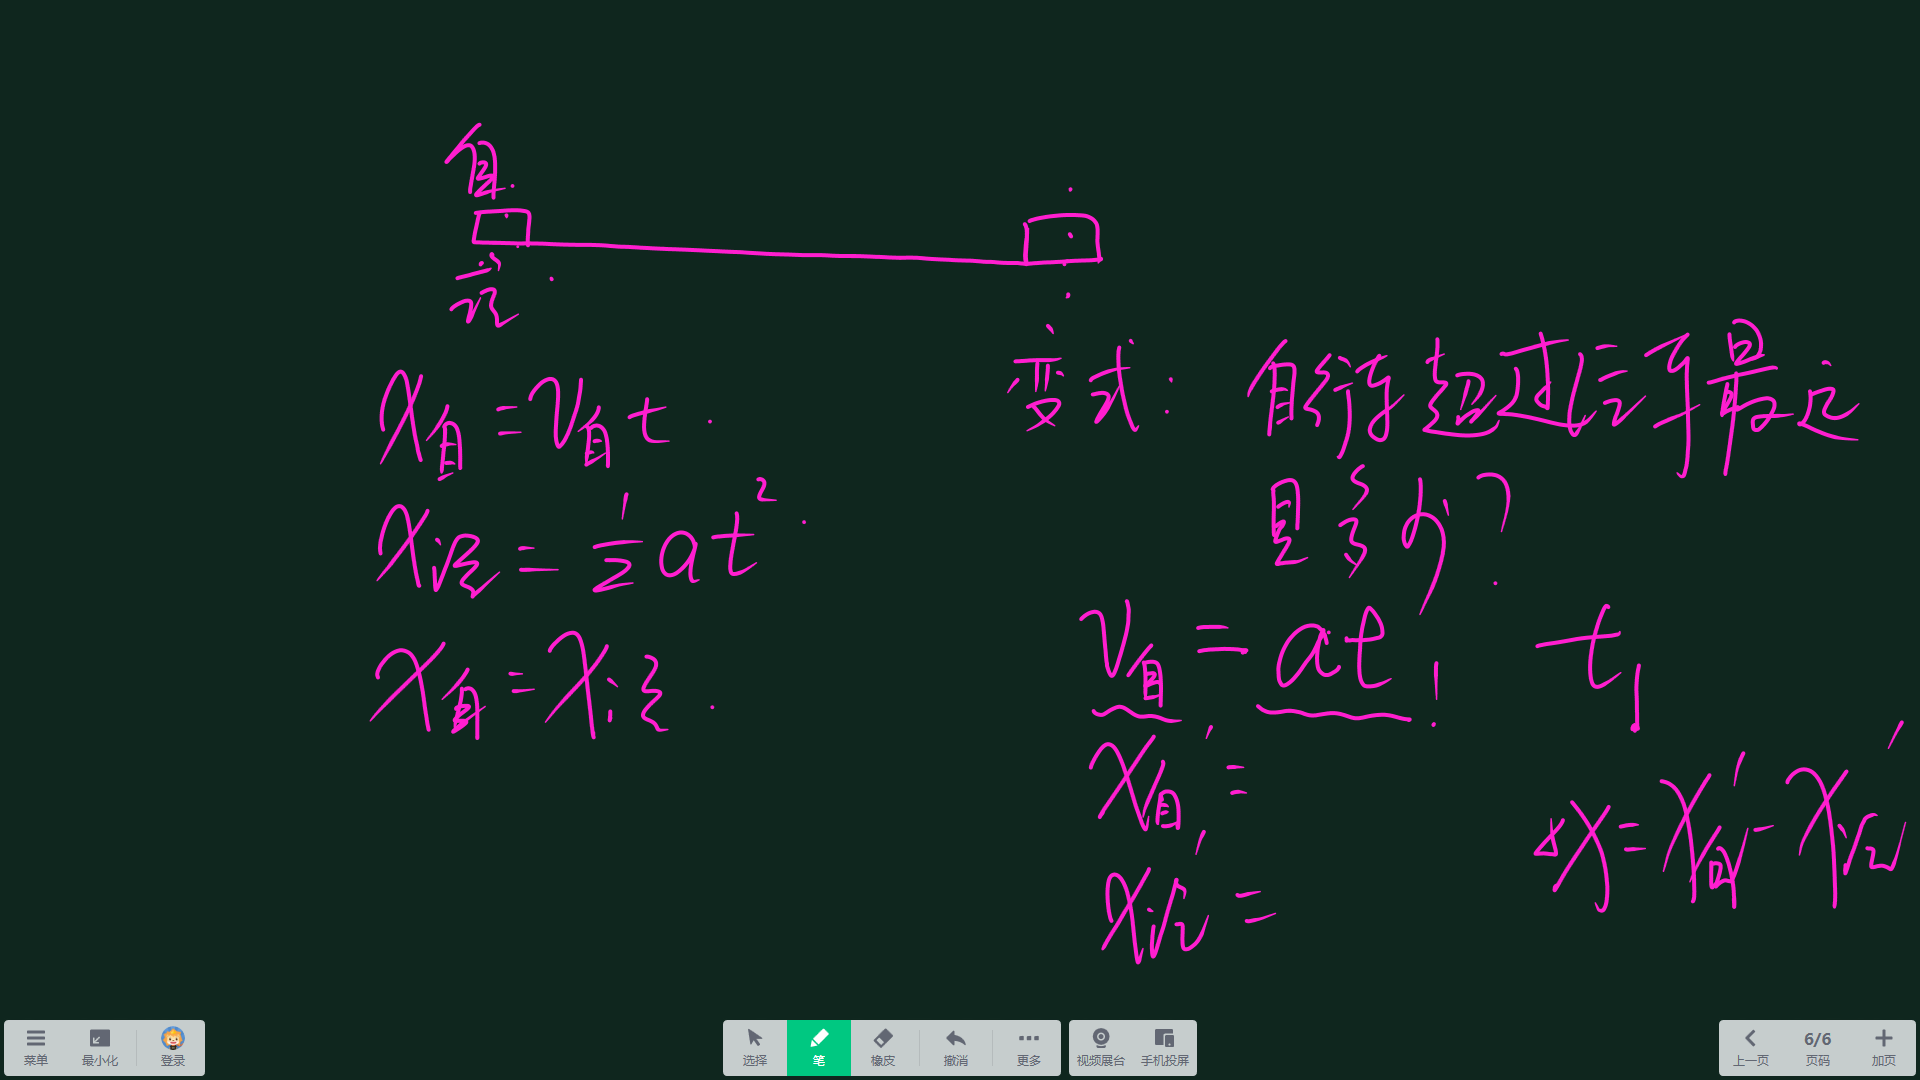 自
汽
x自=v自t
x汽=½at²
x自=x汽
变式:自行车超过汽车最远
是多少?
v自=at₁ t₁
x自'=
x汽'=
Δx=x自'-x汽'
菜单 最小化 登录 选择 笔 橡皮 撤消 更多 视频展台 手机投屏 上一页 6/6 页码 加页